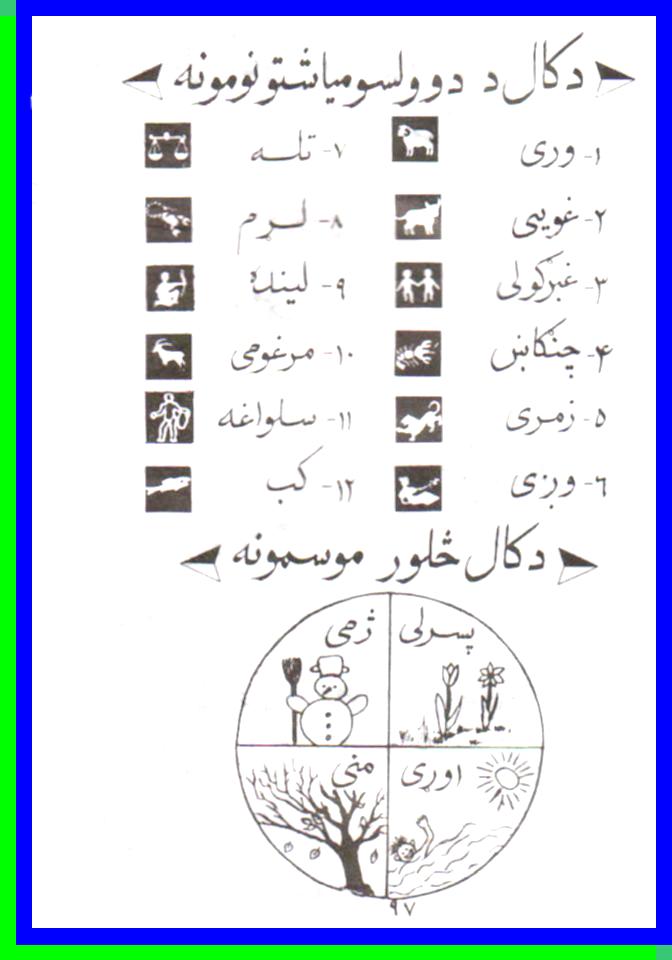 د کال د دوولسو میاشتو نومونه
۱- وری
۲- غويی
۳- غبرګولی
۴- چنګاښ
۵- زمری
۶- وږی
۷- تله
۸- لړم
۹- ليندۍ
۱۰- مرغومی
۱۱- سلواغه
۱۲- کب
د کال څلور موسمونه
پسرلی
ژمی
اوړی
منی
۹۷